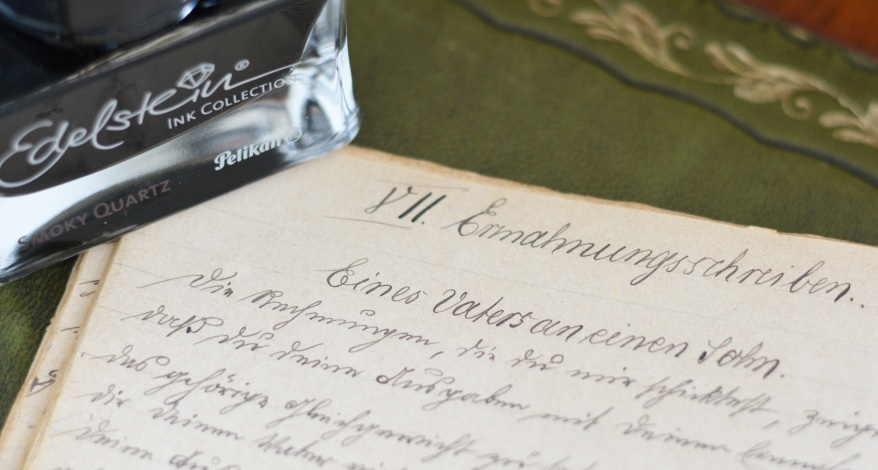 Edelstein®
INK COLLECTION
Pelikan
SMOKY QUARTZ
VII. Ermahnungsschreiben..
Eines Vaters an einen Sohn.
Die Rechnungen, die du mir schicktest,
daß du deine Ausgaben mit deinen
das gehörige Gleichgewicht
die deinem Vater
deine